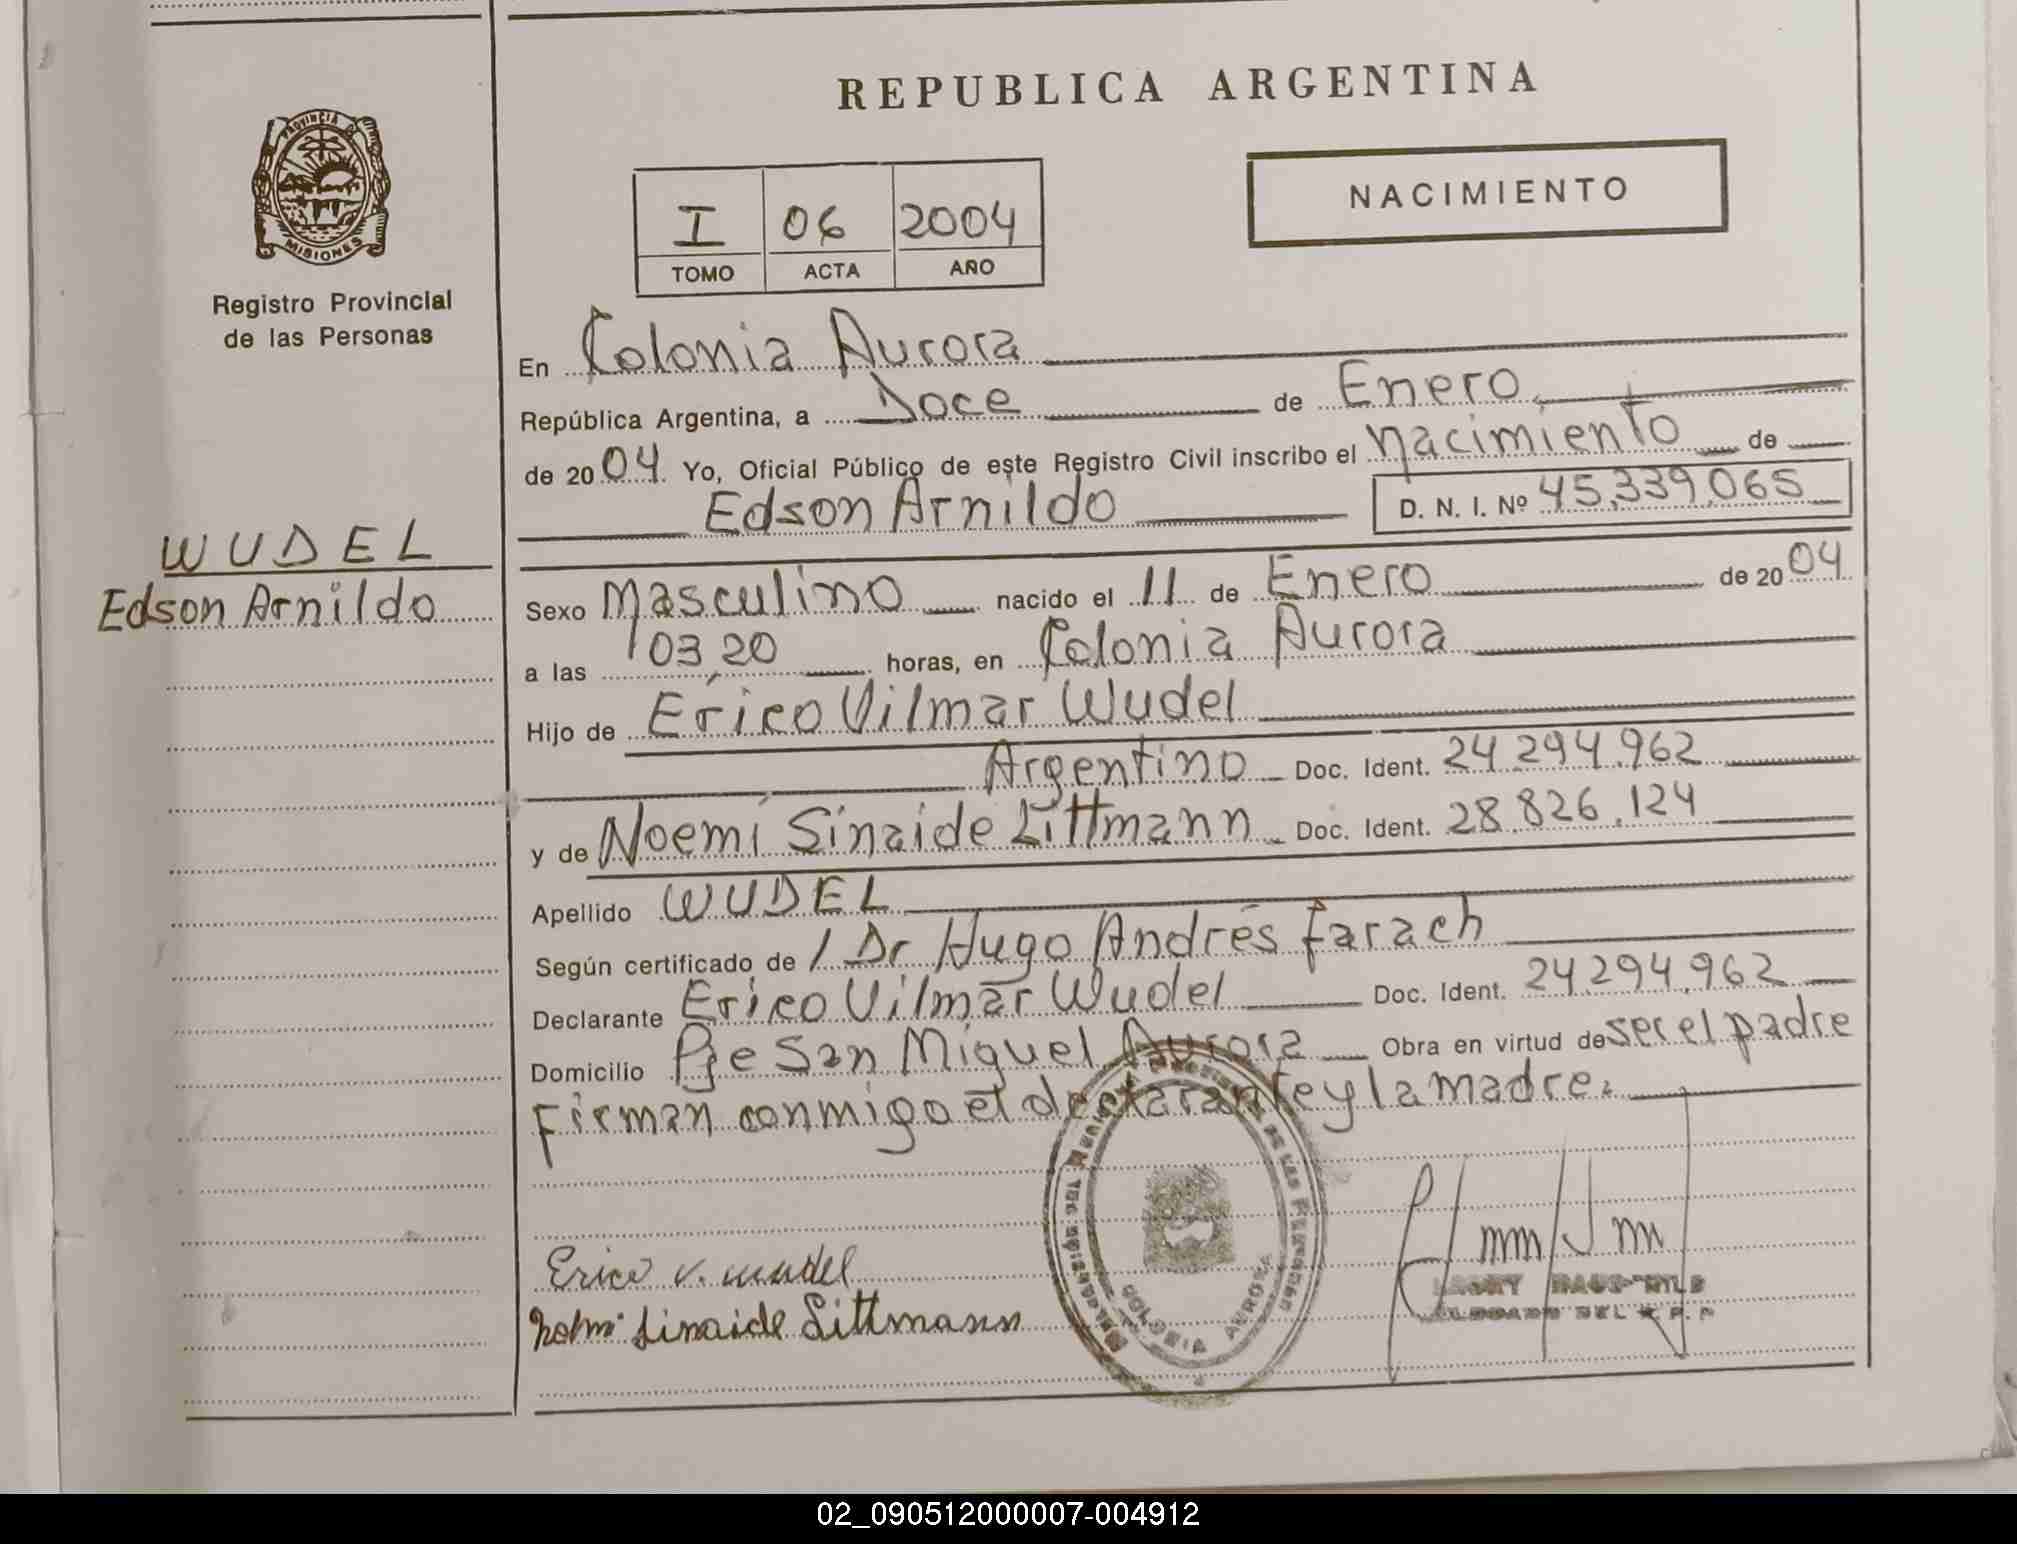 REPUBLICA ARGENTINA
PROVINCIA DE
MISIONES
Registro Provincial
de las Personas
NACIMIENTO
I 06 2004
TOMO ACTA AÑO
En Colonia Aurora
República Argentina, a Doce de Enero
de 2004. Yo, Oficial Público de este Registro Civil inscribo el nacimiento de
Edson Arnildo D. N. I. Nº 45.339.065
WUDEL
Edson Arnildo
Sexo Masculino nacido el 11 de Enero de 2004
a las 03,20 horas, en Colonia Aurora
Hijo de Erico Vilmar Wudel
Argentino Doc. Ident. 24.294.962
y de Noemí Sinaide Littmann Doc. Ident. 28.826.124
Apellido WUDEL
Según certificado de / Dr Hugo Andrés Farach
Declarante Erico Vilmar Wudel Doc. Ident. 24.294.962
Domicilio Pje San Miguel Aurora Obra en virtud de ser el padre
Firman conmigo el declarante y la madre.
Erico v. wudel
Sinaide Littmann
DE LAS PERSONAS
COLONIA AURORA
DEL R.P.P
02_090512000007-004912